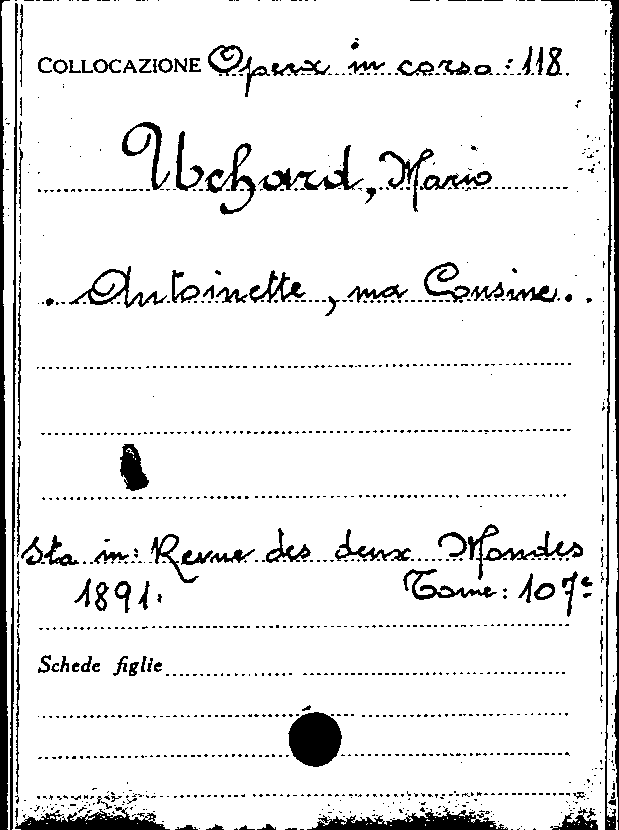 COLLOCAZIONE Opera in corso: 118
Uchard, Mario
. Antoinette, ma Cousine..
Sta in: Revue des deux Mondes
1891. Tome: 107e
Schede figlie